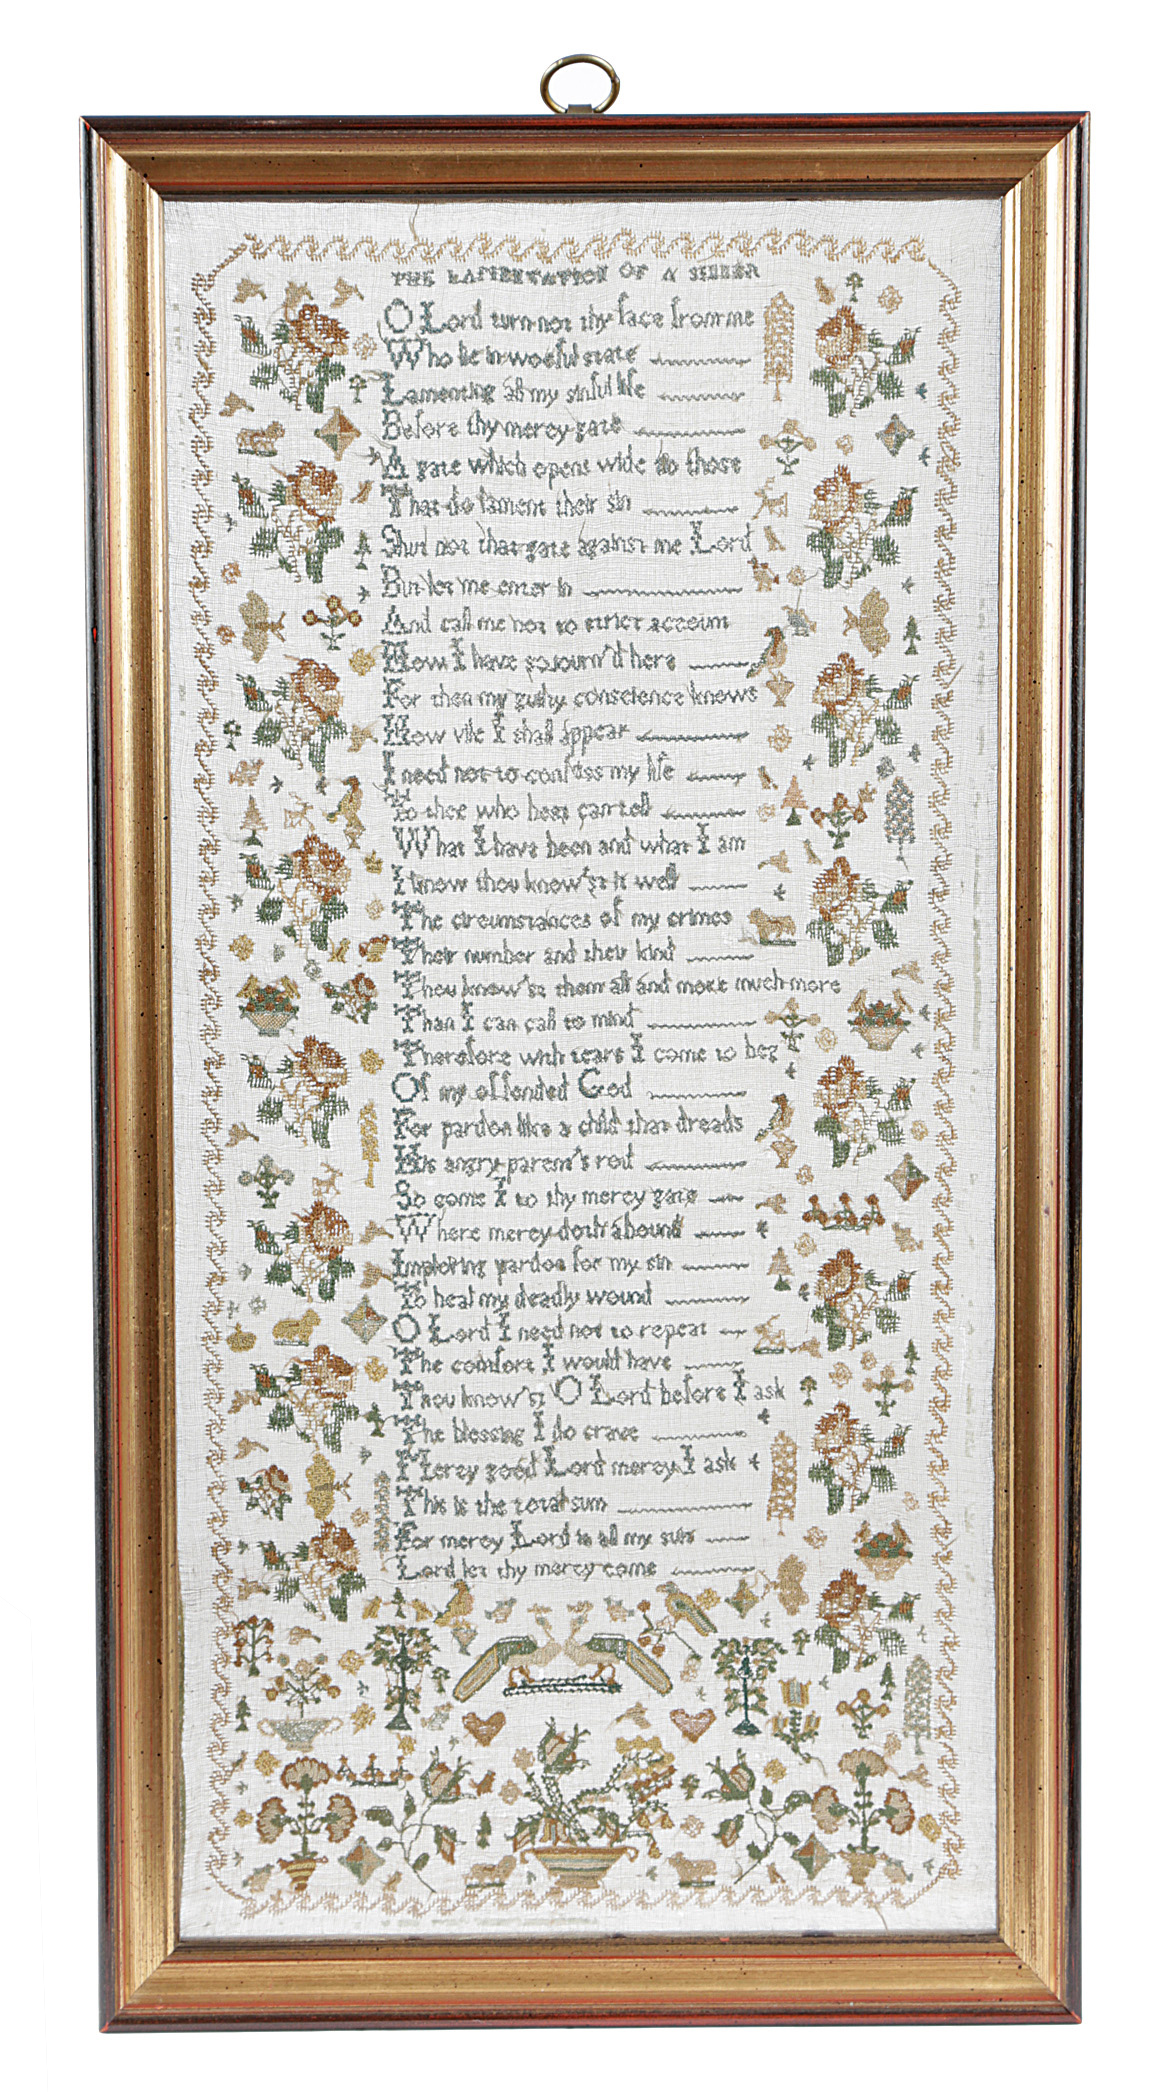 THE LAMENTATION OF A SINNER
O Lord turn not thy face from me
Who lie in woeful state
Lamenting all my sinful life
Before thy mercy gate
A gate which opens wide to those
That do lament their sin
Shut not that gate against me Lord
But let me enter in
And call me not to strict account
How I have sojourn'd here
For then my guilty conscience knows
How vile I shall appear
I need not to confess my life
To thee who best can tell
What I have been and what I am
I know thou know'st it well
The circumstances of my crimes
Their number and their kind
Thou know'st them all and more much more
Than I can call to mind
Therefore with tears I come to beg
Of my offended God
For pardon like a child that dreads
His angry parent's rod
So come I to thy mercy gate
Where mercy doth abound
Imploring pardon for my sin
To heal my deadly wound
O Lord I need not to repeat
The comfort I would have
Thou know'st O Lord before I ask
The blessing I do crave
Mercy good Lord mercy I ask
This is the total sum
For mercy Lord is all my suit
Lord let thy mercy come